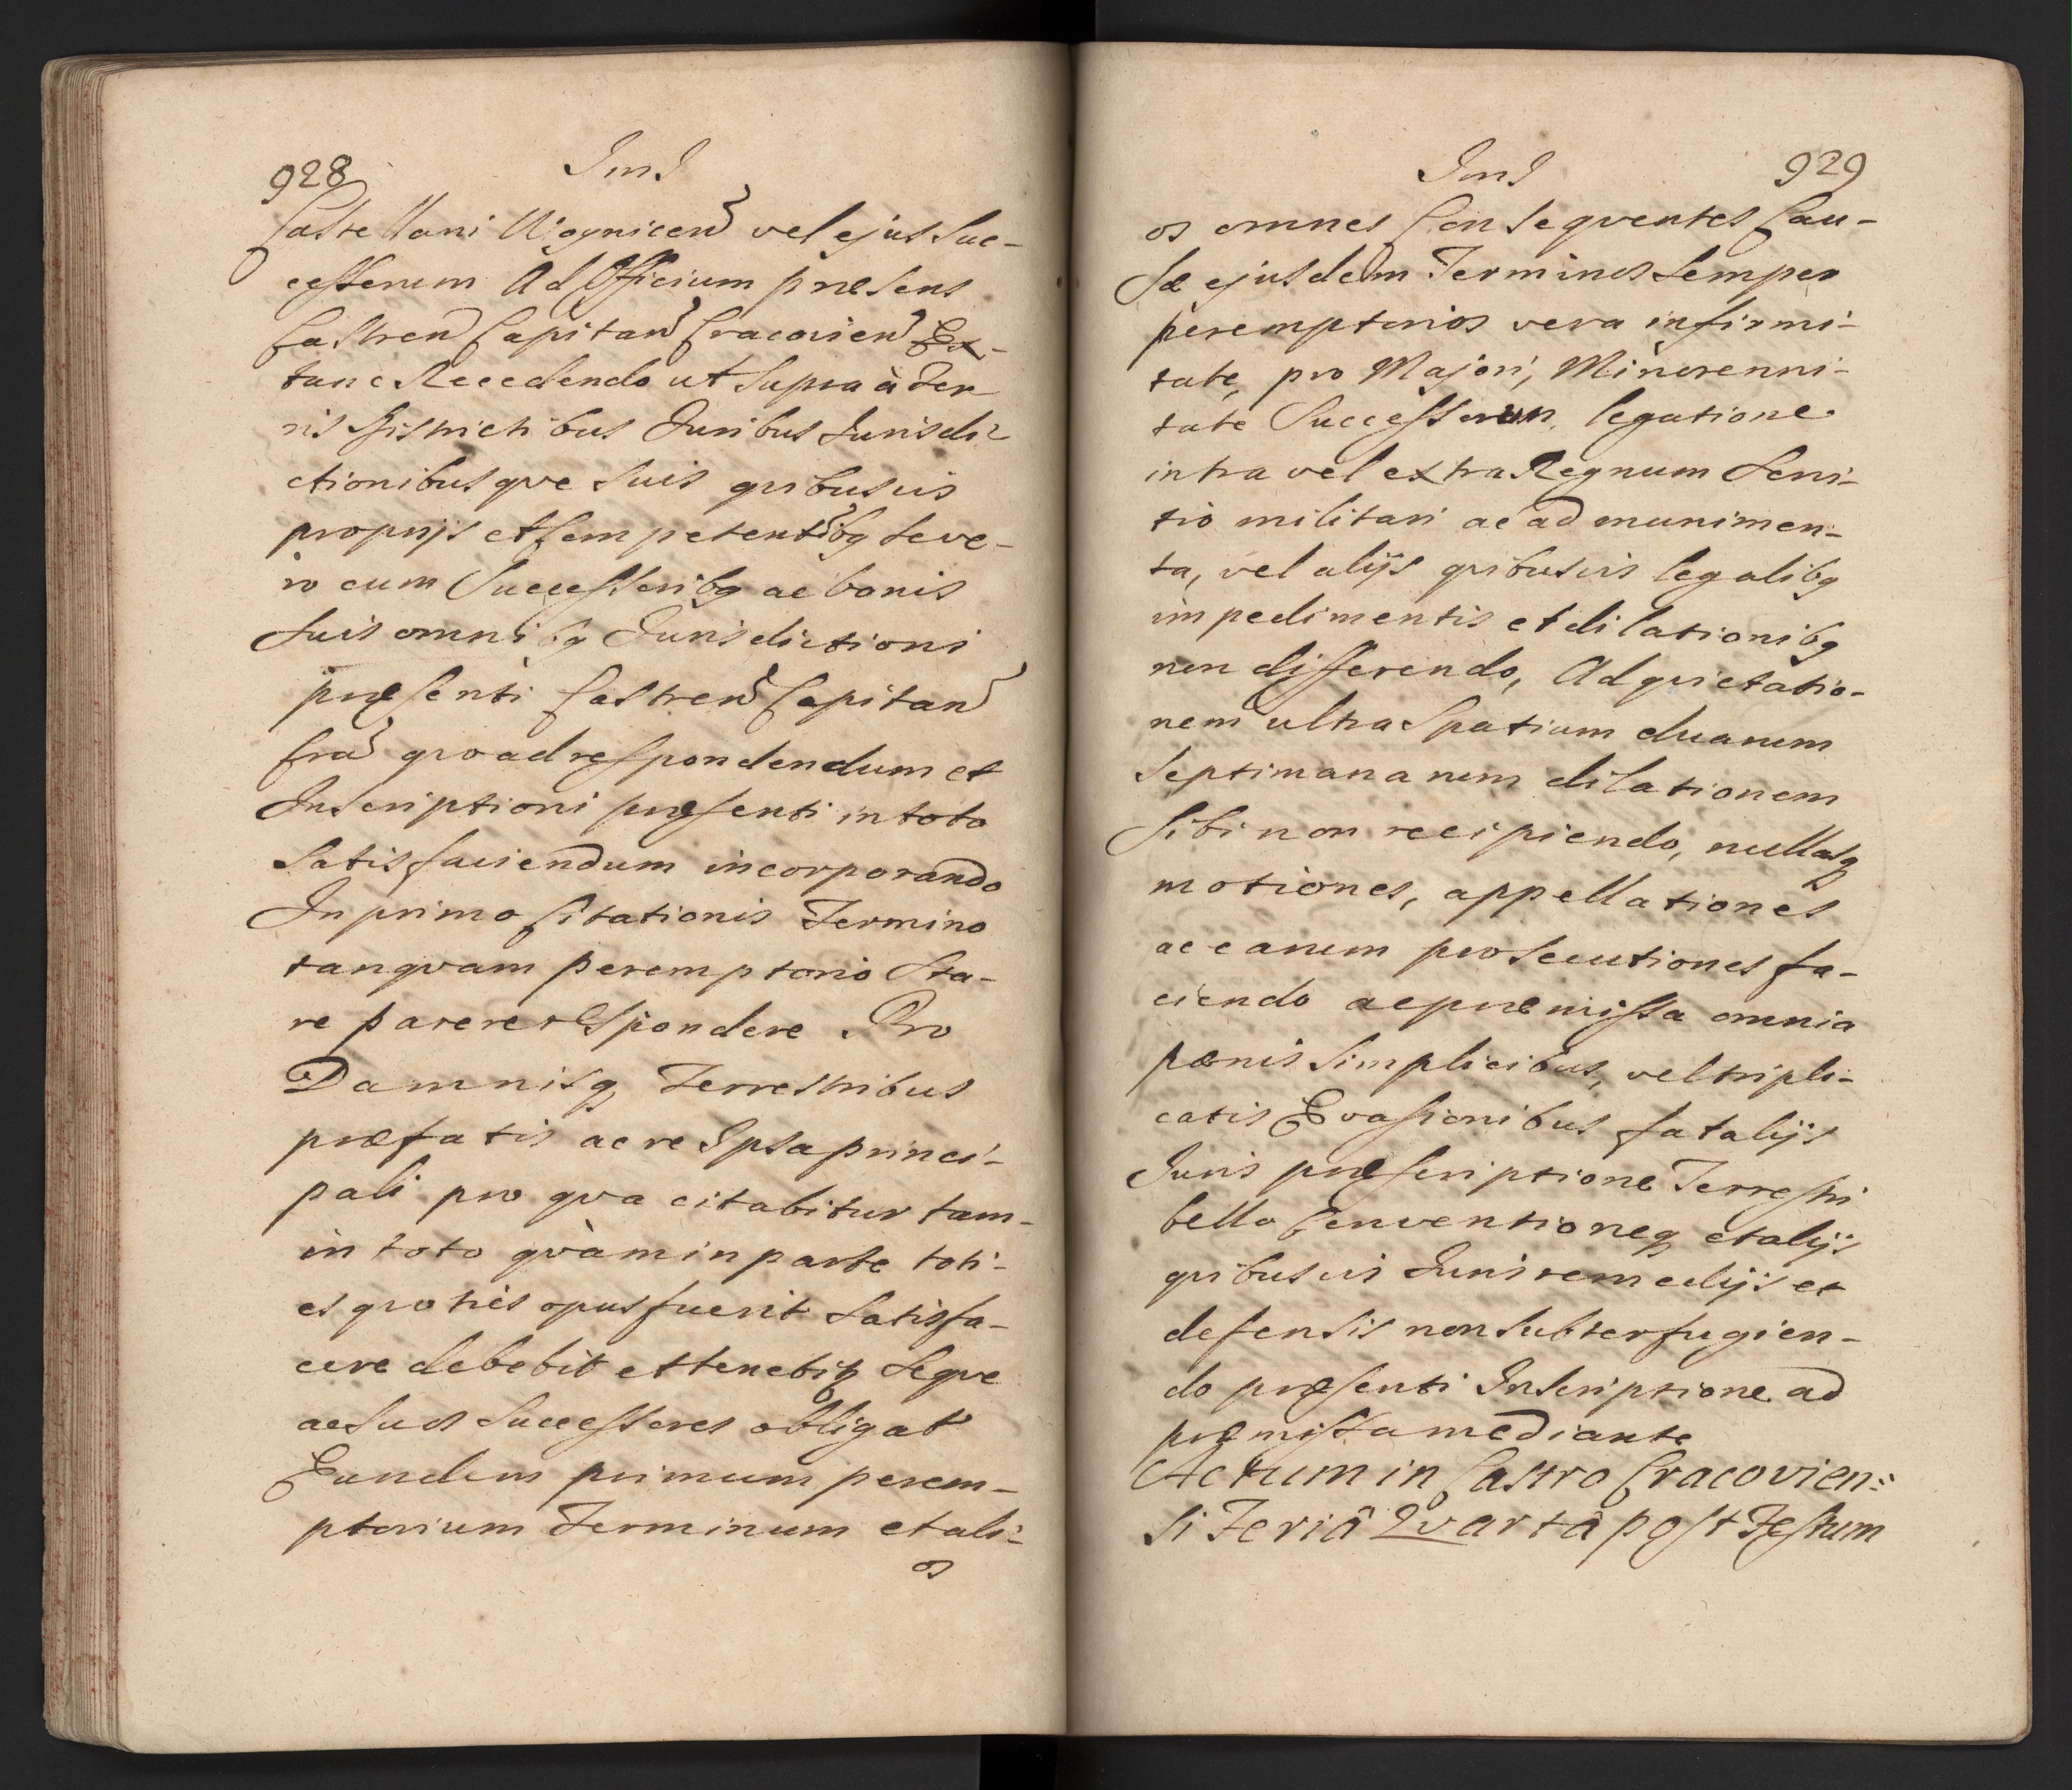 928
Castellani Woynicen vel ejus suc-
cessorum Ad Officium præsens
Castren Capitan Cracovien Ex-
tunc Recedendo ut supra à Ter
ris Districtibus Juribus Jurisdi-
ctionibusqve suis qvibusvis
proprijs et Competentibg seve-
ro cum Successoribg ac bonis
suis omnibg Jurisdictioni
præsenti Castren Capitan
Cra qvo ad respondendum et
Inscriptioni præsenti in toto
satisfaciendum incorporando
In primo Citationis Termino
tanqvam peremptorio Sta-
re parere respondere Pro
Damnisq Terrestribus
præfatis ac re Ipsa princi-
pali pro qva citabitur tam-
in toto qvàm in parte toti-
es qvoties opus fuerit satisfa-
cere debebit et tenebitq seqve
ac suos successores obligat
Eundem primum perem-
ptorium Terminum et ali-
os
929
os omnes Conseqventes Cau-
sæ ejusdem Terminos semper
peremptorios vera infirmi-
tate, pro Majori, Minorenni-
tate Successorum, legatione
intra vel extra Regnum Servi-
tio militari ac ad munimen-
ta, vel alijs qvibusvis legalibg
impedimentis et dilationibg
non differendo, Ad qvietatio-
nem ultra Spatium duarum
septimanarum dilationem
sibi non recipiendo, nullasq
motiones, appellationes
ac earum prosecutiones fa-
ciendo ac præmissa omnia
pænis simplicibus, vel tripli-
catis Evasionibus fatalijs
Juris præscriptione Terrestri
bello Conventioneq et alijs
qvibusvis Juris remedijs et
defensis non subterfugien-
do præsenti Inscriptione ad
præmissa mediante
Actum in Castro Cracovien:
si Feriâ Qvartâ post Festum